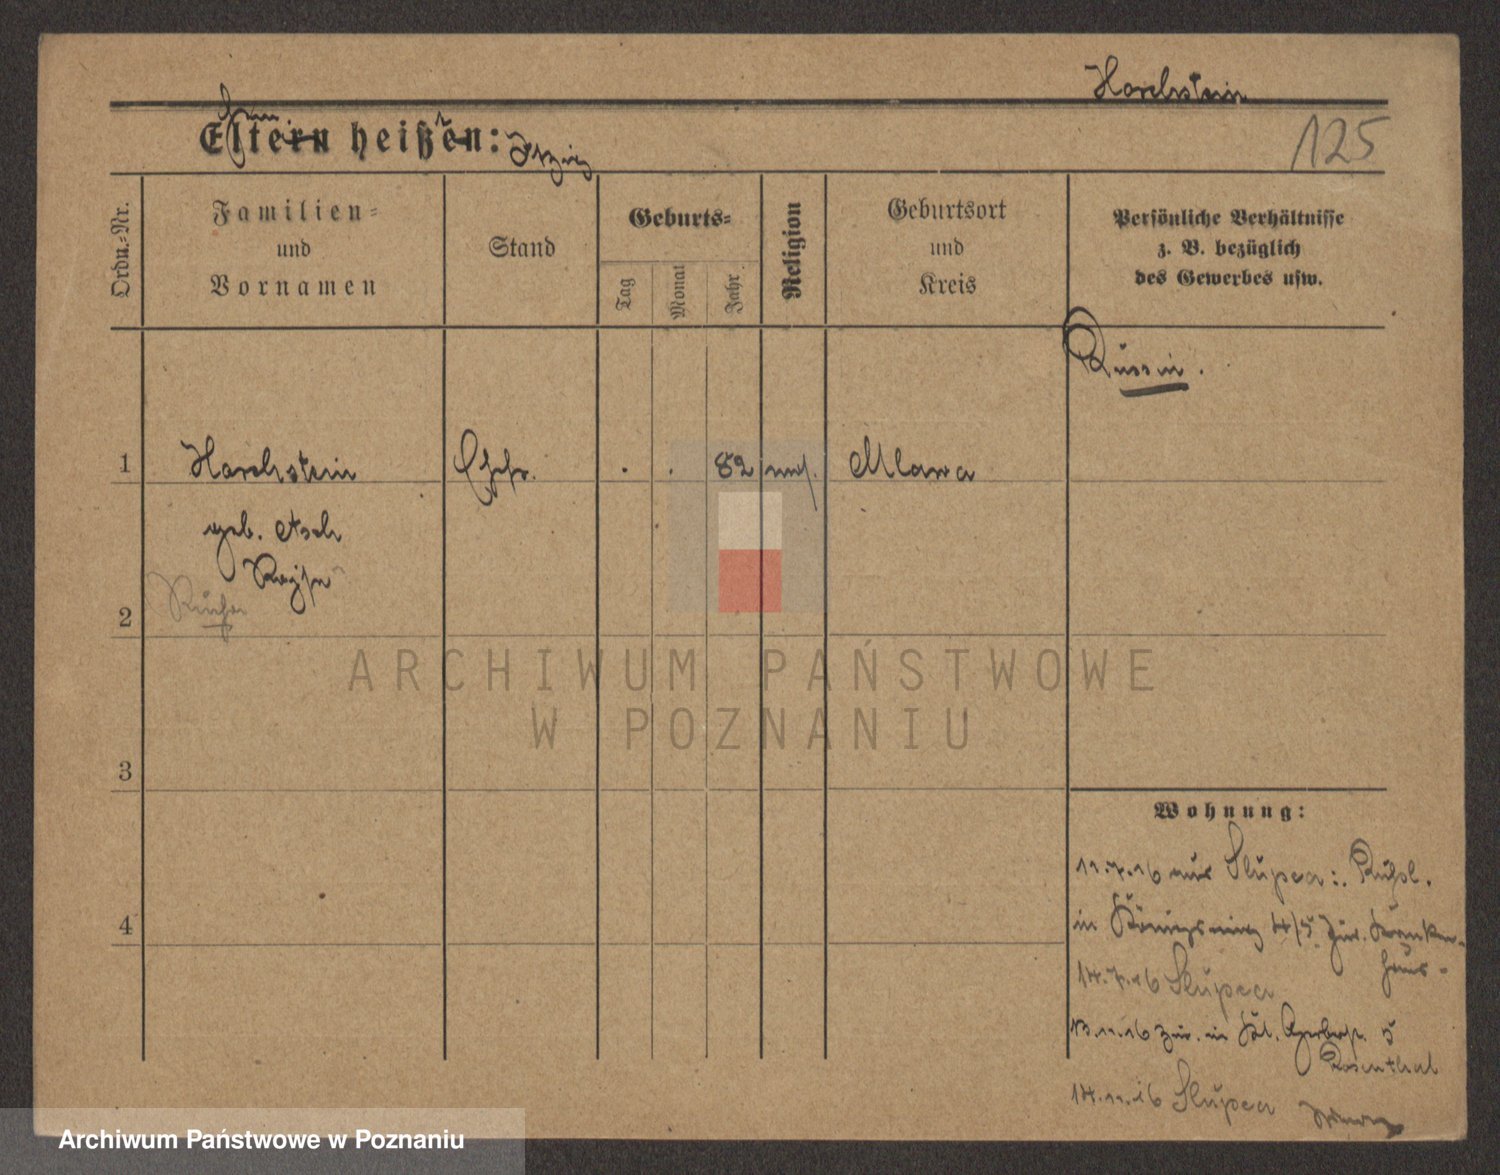 Horchstein
125
Eltern heißen: Itzig
Ordn.-Nr.
Familien-
und
Vornamen
Stand
Geburts-
Tag
Monat
Jahr
Religion
Geburtsort
und
Kreis
Persönliche Verhältnisse
z. B. bezüglich
des Gewerbes usw.
Russin.
1 Horchstein Ehefr. . . 82 mos. Mlawa
geb. Asch
2
3
Wohnung:
11.7.16 aus Slupca: Rußl.
4
in Königsring 4/5 Jüd. Kranken-
haus-
14.7.16 Slupca
13.11.16 zur. in Kl. Gerberstr. 5
Rosenthal
14.11.16 Slupca
ARCHIWUM PAŃSTWOWE
W POZNANIU
Archiwum Państwowe w Poznaniu